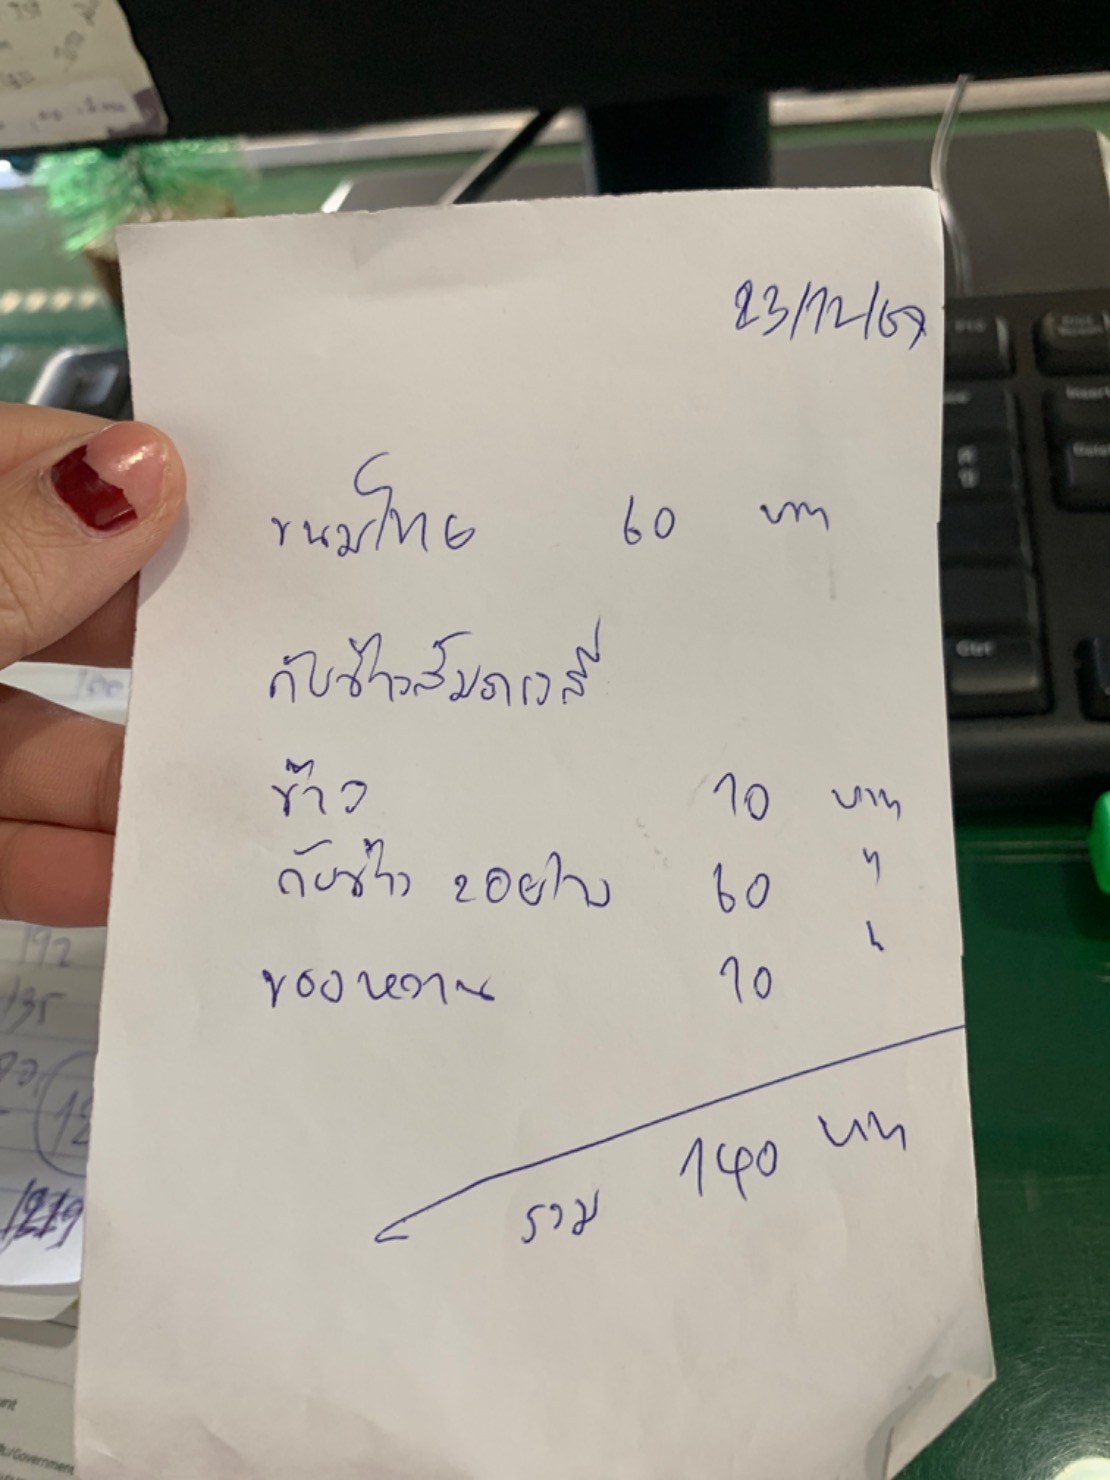 23/12/67
ขนมไทย 60 บาท
กับข้าวสัมภเวสี
ข้าว 10 บาท
กับข้าว 2 อย่าง 60 "
ของหวาน 10 "
รวม 140 บาท
192
135
1279
Ctrl
Insert